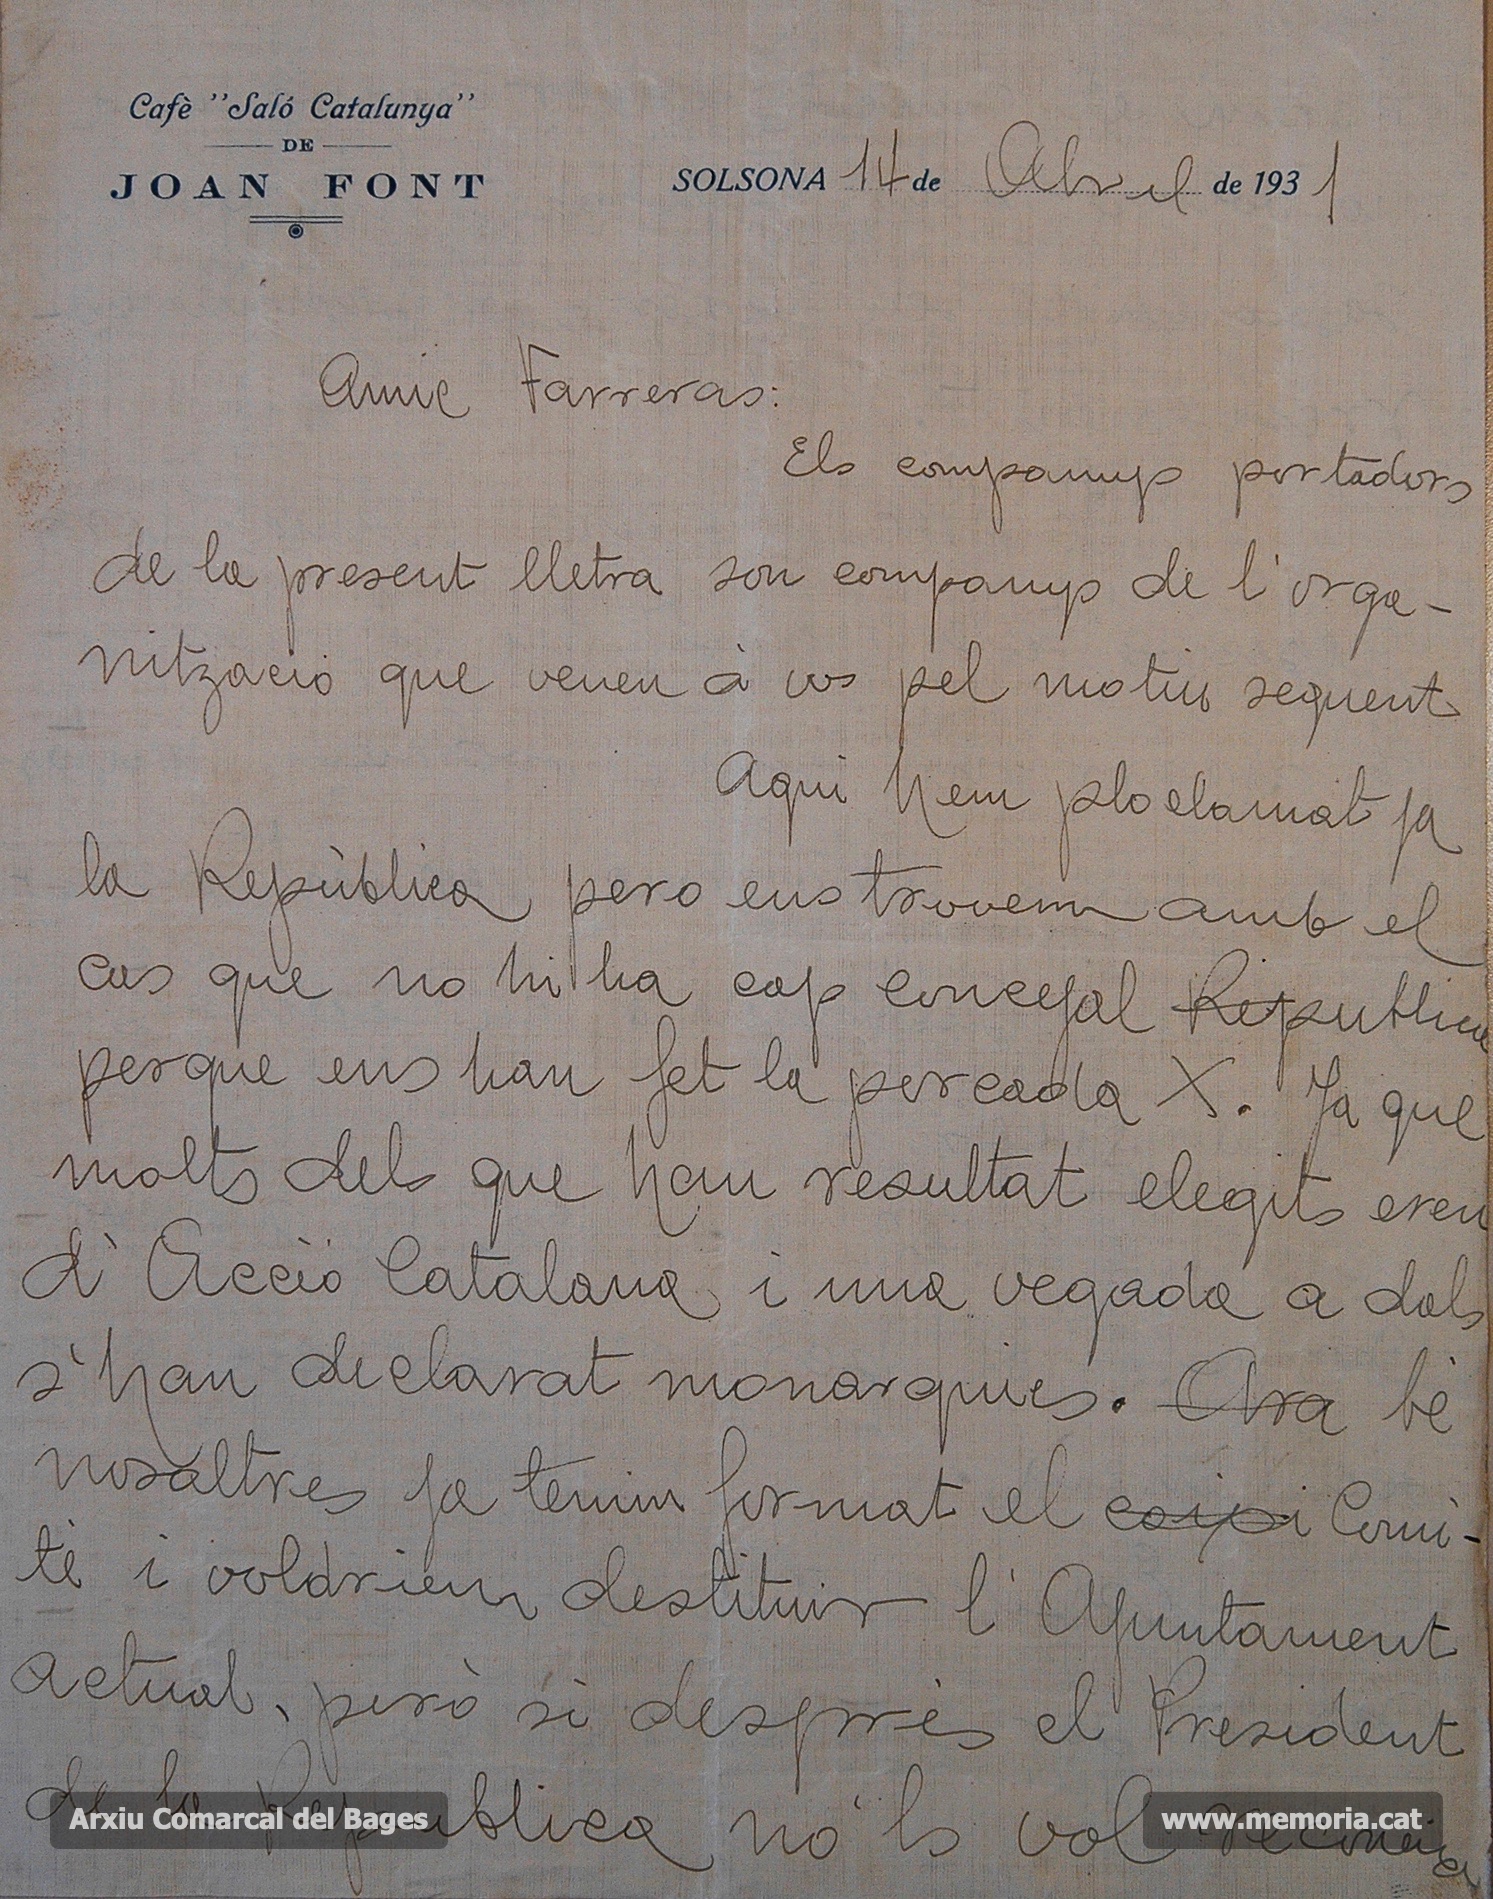 Cafè "Saló Catalunya"
DE
JOAN FONT
SOLSONA 14 de Abril de 1931
Amic Farreras:
Els companys portadors
de la present lletra son companys de l'orga-
nització que venen à vos pel motiu seguent
Aqui hem ploclamat ja
la Repùblica pero ens trovem amb el
cas que no hi ha cap concejal Republica
perque ens han fet la porcada X. Ja que
molts dels que han resultat elegits eren
d'Acciò Catalana i una vegada a dals
s'han declarat monarquics. Ara bè
nosaltres ja tenim format el Comi-
tè i voldriem destituir l'Ajuntament
actual, però si desprès el President
de la Republica no'ls vol reconeixer
Arxiu Comarcal del Bages
www.memoria.cat